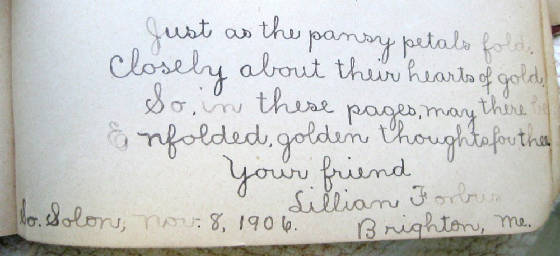 Just as the pansy petals fold,
Closely about their hearts of gold,
So, in these pages, may there be
Enfolded, golden thoughts for thee
Your friend
Lillian Forbus
So. Solon, Nov. 8, 1906. Brighton, Me.